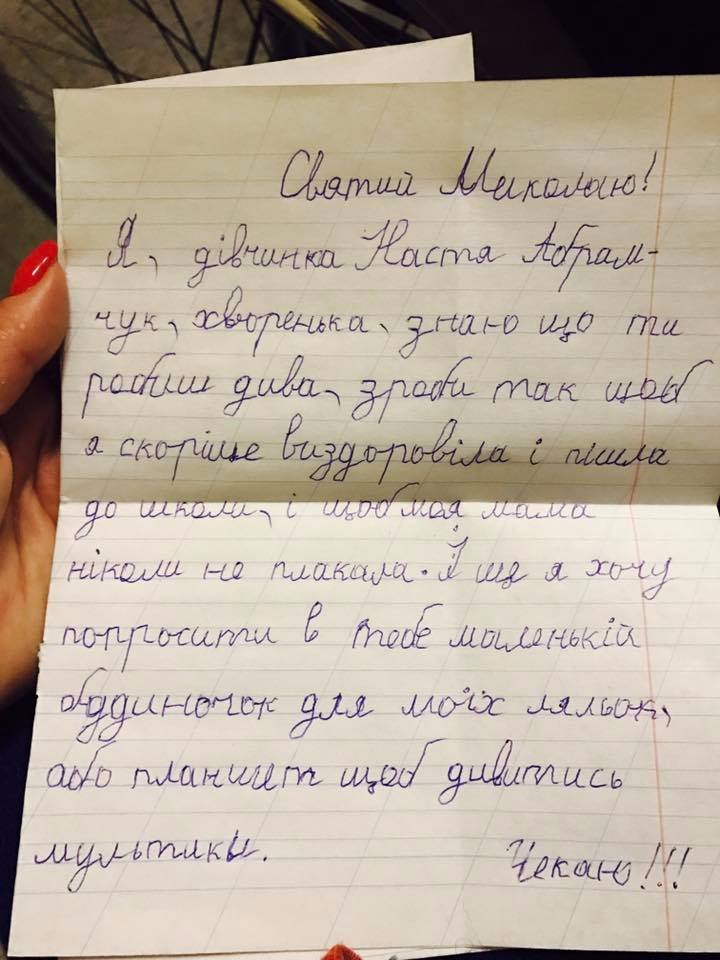 Святий Миколаю!
Я, дівчинка Настя Абрам-
чук, хворенька, знаю що ти
робиш дива, зроби так щоб
я скоріше виздоровіла і пішла
до школи, і щоб моя мама
ніколи не плакала. І ще я хочу
попросити в тебе маленькій
будиночок для моїх ляльок,
або планшет щоб дивитись
мультики. Чекаю!!!